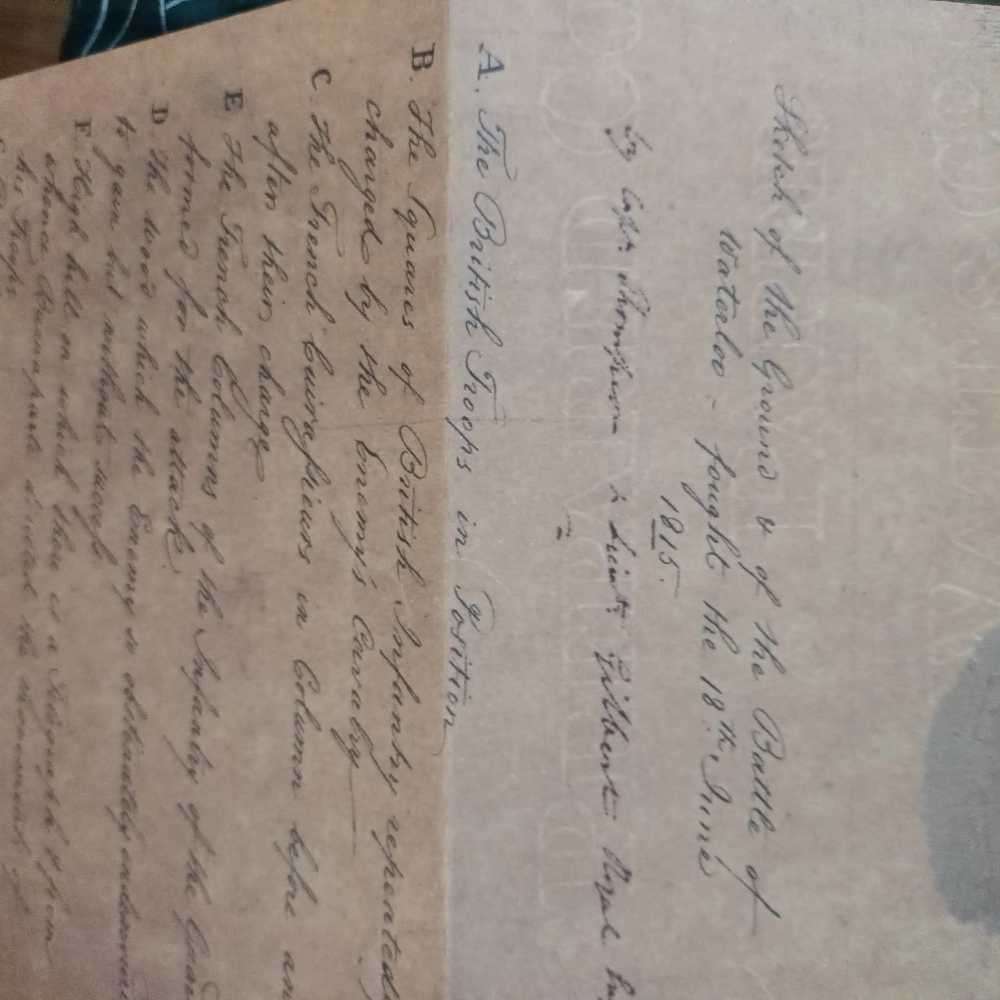 Sketch of the Ground & of the Battle of
Waterloo - fought the 18th June
1815.
by Capt Thompson & Lieut. Gilbert Royal
A. The British Troops in Position
B. The Squares of British Infantry repeatedly
charged by the Enemy's Cavalry
C. The French Cuirassiers in Column before
after their charge
E The French Columns of the Infantry of the
formed for the attack.
D The wood which the Enemy so obstinately
to gain but without success
F. High hill on which there is a from
whence Buonaparte dictated the movements of
his Troops